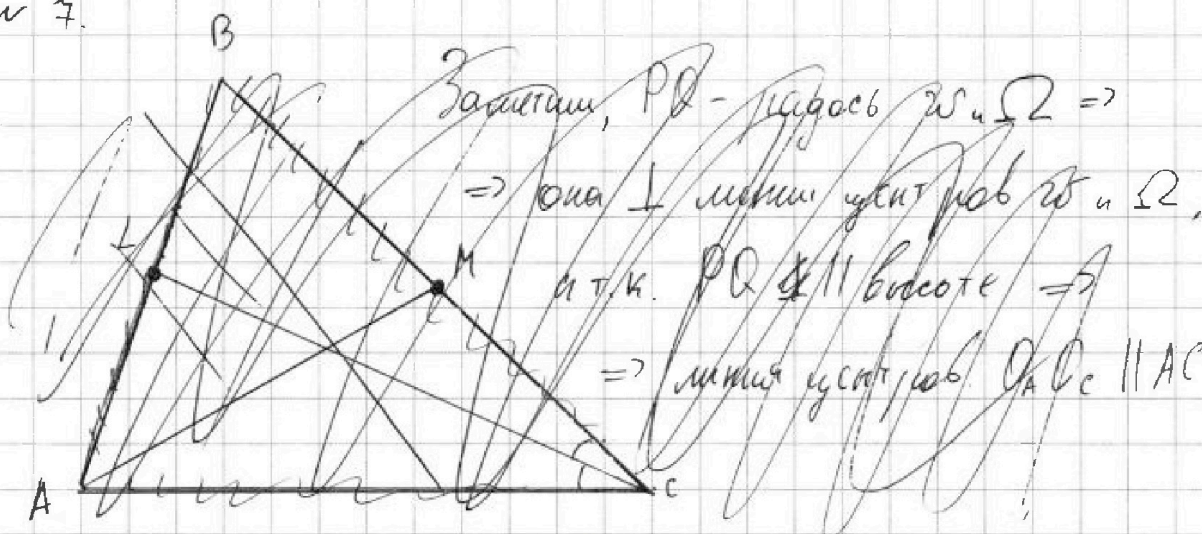 № 7.
B
Заметим, PQ - радось ω и Ω =>
=> она ⊥ линии центров ω и Ω,
M
и т.к. PQ || высоте =>
=> линия центров O_A O_C || AC
A
C